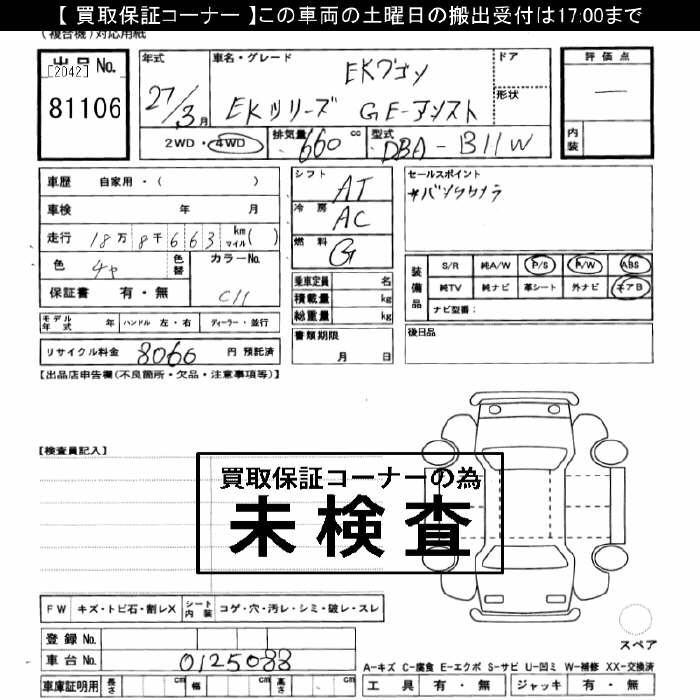 【 買取保証コーナー 】この車両の土曜日の搬出受付は17:00まで
(複合機)対応用紙
出品 No.
[2042]
81106
年式
27/3月
車名・グレード
EKワゴン
EKシリーズ GE-アシスト
ドア
形状
評価点
内装
2WD・4WD
排気量 660 cc
型式 DBA - B11W
車歴 自家用・( )
車検 年 月
走行 18万 8千 6 6 3 km マイル ( )
色
色替
カラーNo.
C11
保証書 有・無
シフト AT
冷房 AC
燃料 G
乗車定員 名
積載量 kg
総重量 kg
書類期限
月 日
セールスポイント
*バックカメラ
装備品
S/R 純A/W P/S P/W ABS
純TV 純ナビ 革シート 外ナビ エアB
ナビ型番:
後日品
モデル年式 年 ハンドル 左・右 ディーラー・並行
リサイクル料金 8060 円 預託済
【出品店申告欄(不良箇所・欠品・注意事項等)】
【検査員記入】
買取保証コーナーの為
未検査
FW キズ・トビ石・割レX シート内装 コゲ・穴・汚レ・シミ・破レ・スレ
スペア
登録 No.
車台 No. 0125088
車庫証明用 長さ cm 幅 cm 高さ cm
A-キズ C-腐食 E-エクボ S-サビ U-凹ミ W-補修 XX-交換済
工具 有・無 ジャッキ 有・無